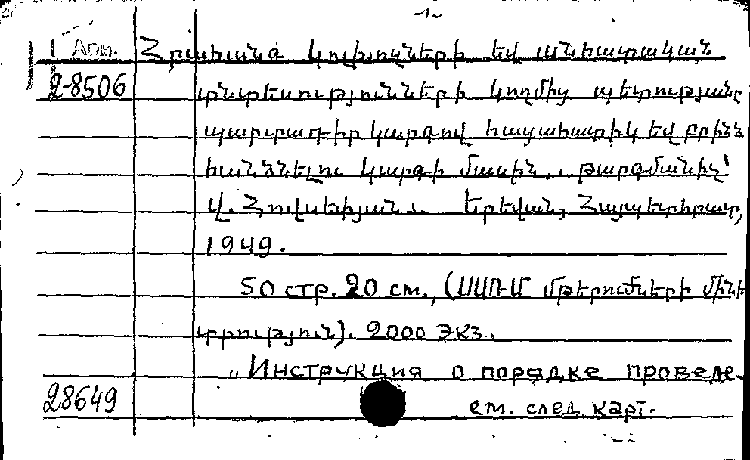 -1-
1 Арм. Հրահանգ կոլխոզների եվ անհատական
2-8506 տնտեսությունների կողմից պետությանը
պարտադիր կարգով հացահատիկ եվ բրինձ
հանձնելու կարգի մասին.. թարգմանիչ՝
Վ. Հովսեփյան.. Երեվան, Հայպետհրատ,
1949.
50 стр. 20 см., (ՍՍՌՄ մթերումների մինի
տրություն). 2000 экз.
„Инструкция о порядке проведе-
28649 см. след. карт.